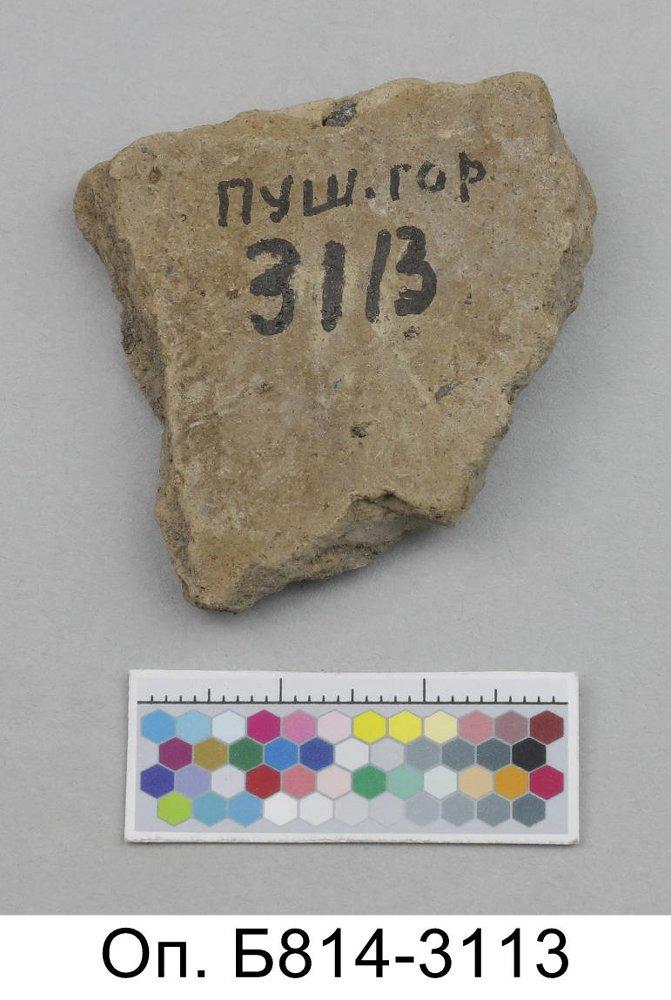 пуш.гор
3113
Оп. Б814-3113